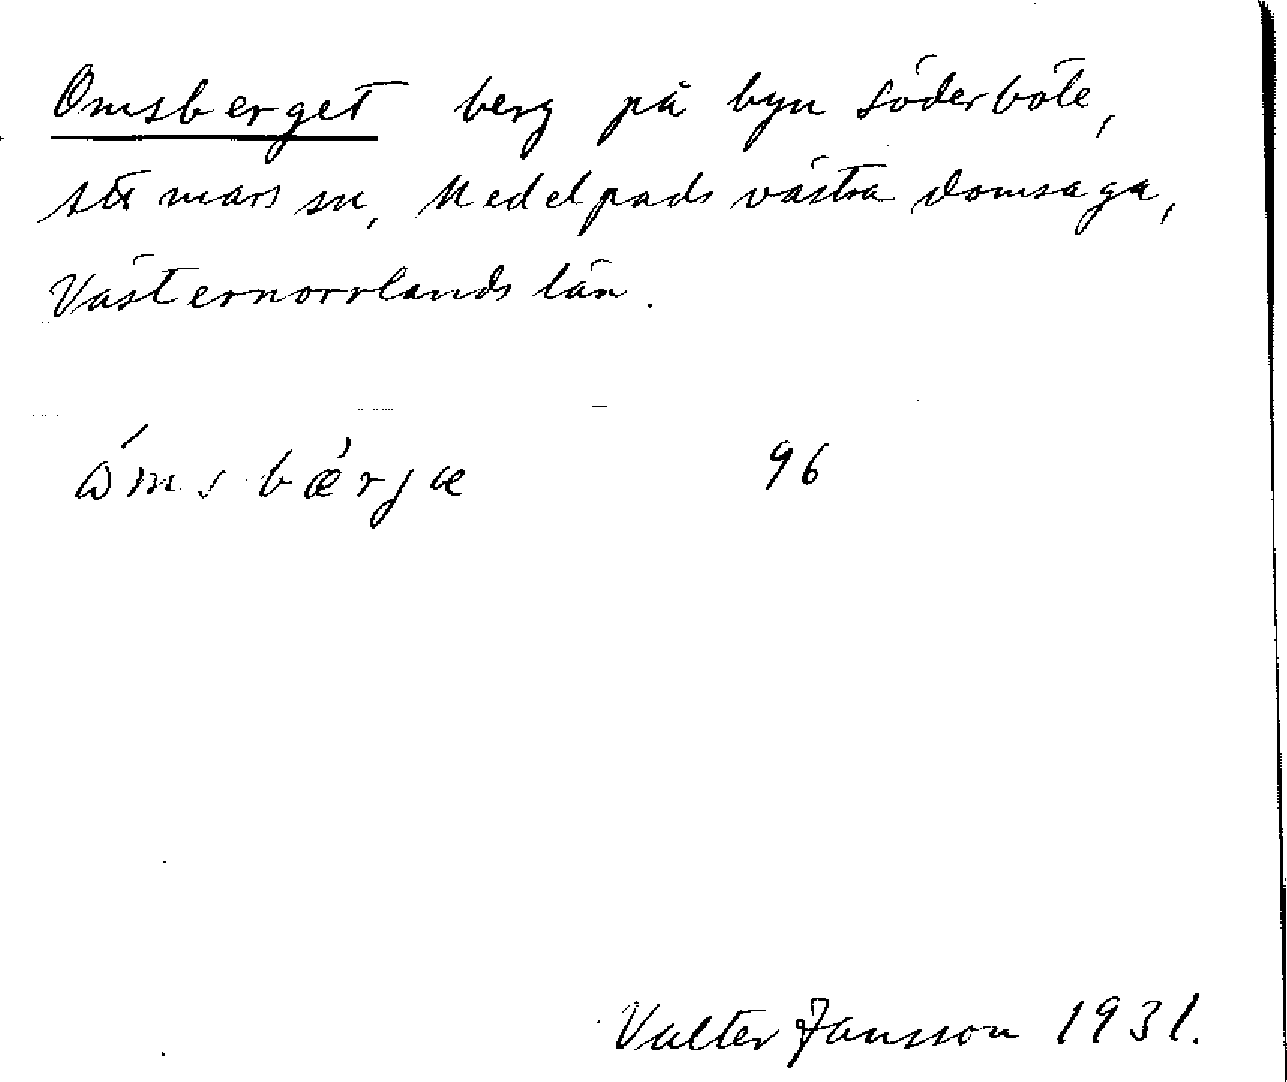 Omsberget berg på byn Söderböle,
Attmars sn, Medelpads västra domsaga,
Västernorrlands län.
ɷ́msbǽrjæ 96
Valter Jansson 1931.